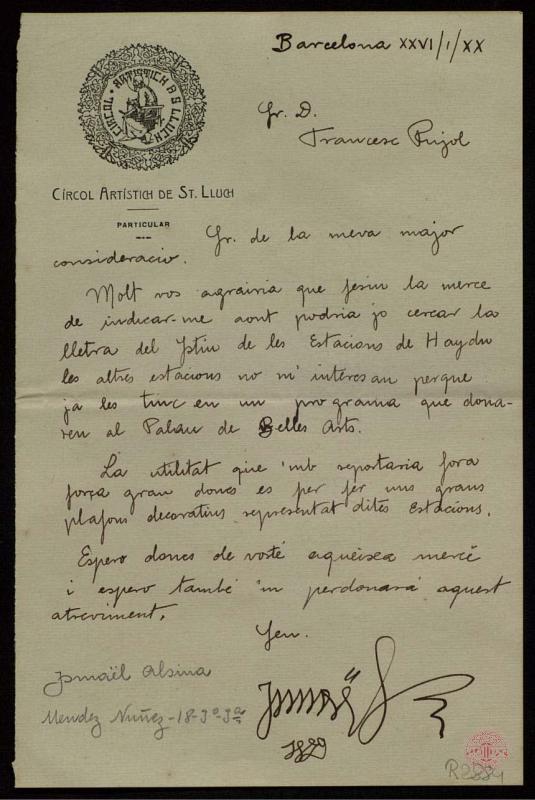 Barcelona XXVI/I/XX
CIRCOL ARTISTICH DE S. LLUCH
Sr. D.
Francesc Pujol
CÍRCOL ARTÍSTICH DE ST. LLUCH
PARTICULAR
Sr. de la meva major
consideracio.
Molt vos agrairia que fesiu la merce
de indicar-me aont podria jo cercar la
lletra del Istiu de les Estacions de Haydn
les altres estacions no m'interesan perque
ja les tinc en un programa que dona-
ren al Palau de Belles Arts.
La utilitat que 'mb reportaria fora
força gran doncs es per fer uns grans
plafons decoratius representat dites Estacions.
Espero doncs de vosté aqueixa mercé
i espero també 'm perdonará aquest
atreviment.
Seu.
Ismaël Alsina
Mendez Nuñez-18-3º-3ª
Ismaël